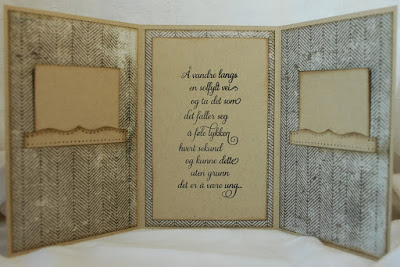 Å vandre langs
en solfylt vei
og ta det som
det faller seg
å føle lykken
hvert sekund
og kunne dette
uten grunn
det er å være ung..